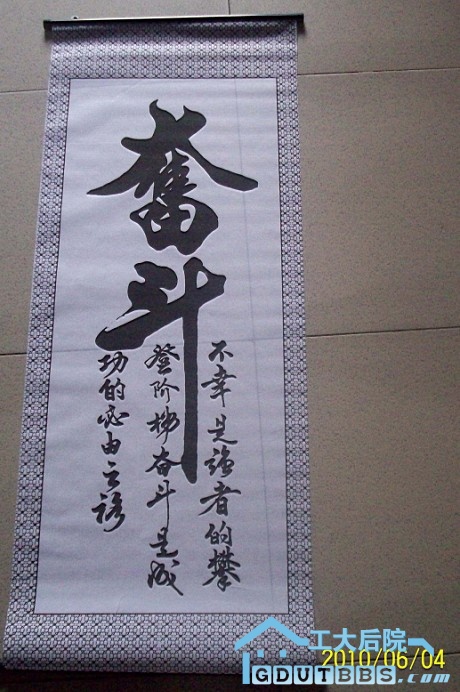 奮斗
不幸是强者的攀
登阶梯奋斗是成
功的必由之路
工大后院
GDUTBBS.com
2010/06/04